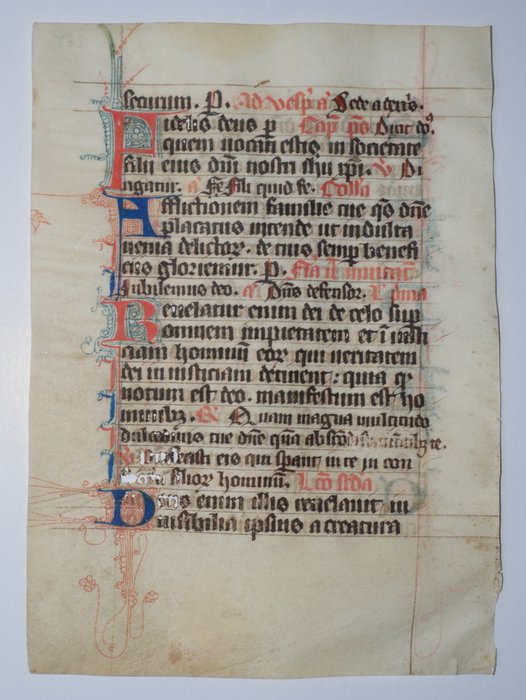 securum. P. Ad vesp a Sede a dexris.
Fidelis deus p Capi pos Dixit do
quem vocati estis in societate
filii eius dni nostri ihu xpi. V Di
rigatur. a Fe Fili quid fe. Colla
Afflictionem familie tue qs dne
placatus intende ut indulta
venia delictor. de tuis semp benefi
ciis gloriemur. P. Fia ii invitat
Iubilemus deo. an Dns defensor. L pma
Revelatur enim ira dei de celo sup
omnem impietatem et iniusti
ciam hominum eor qui veritatem
dei in iusticiam detinent: quia qd
notum est deo. manifestum est ho
minibz. R Quam magna multitudo
dulcedinis tue dne qua abscondisti
eis qui sperant in te in con
filior hominum. Lco scda
Deus enim illis revelavit in
visibilia ipsius a creatura